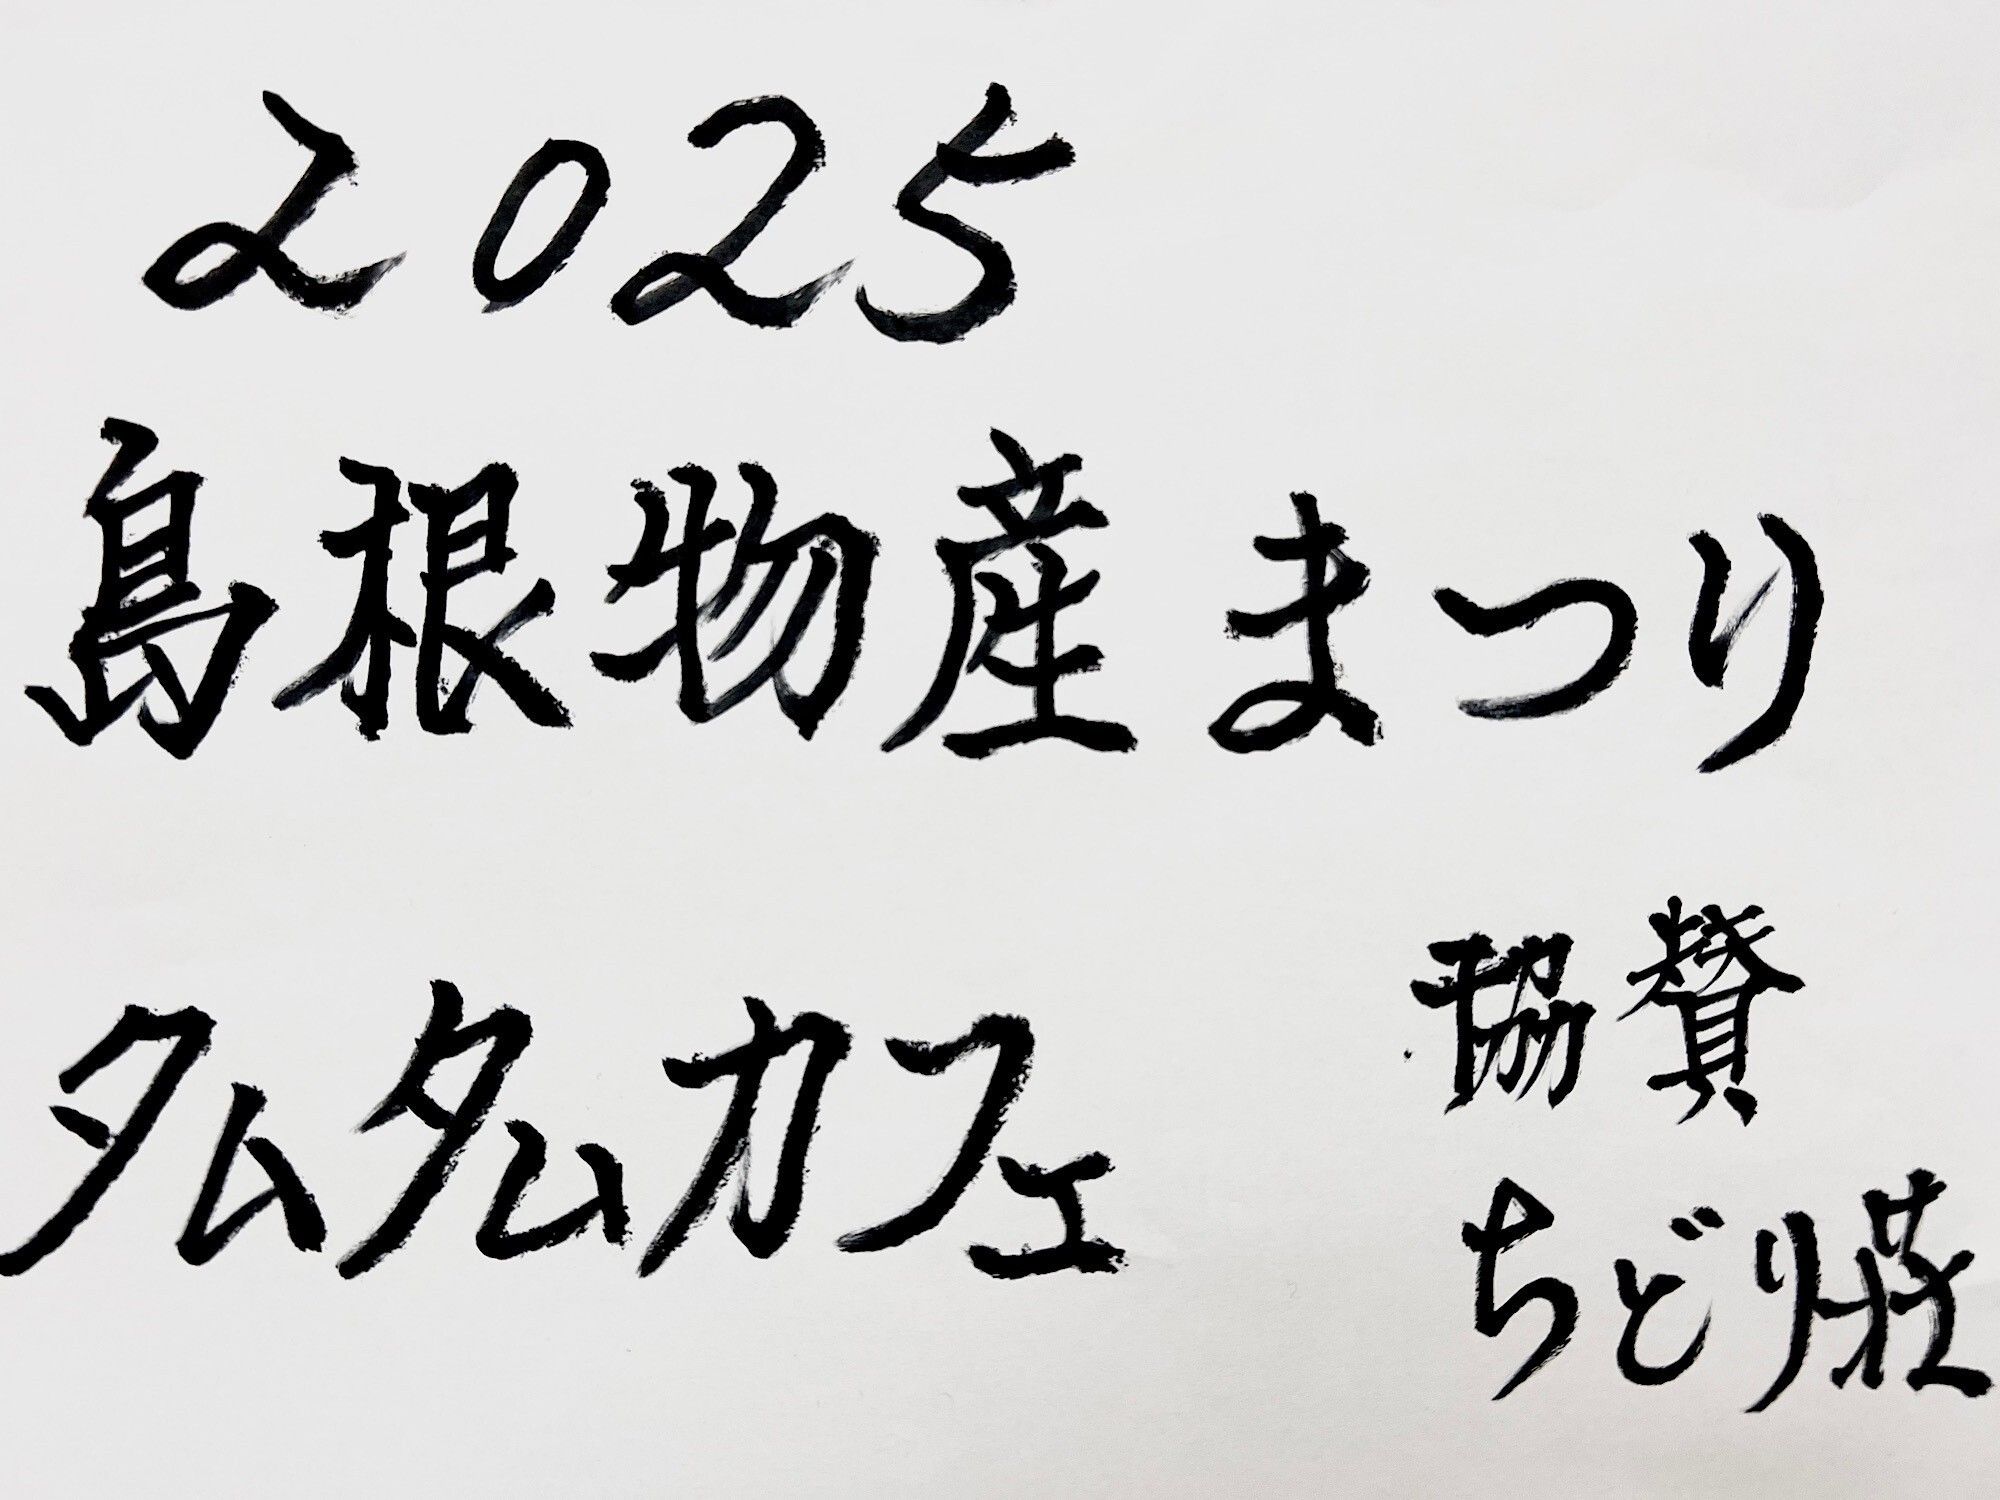 2025
島根物産まつり
タムタムカフェ
協賛
ちどり荘